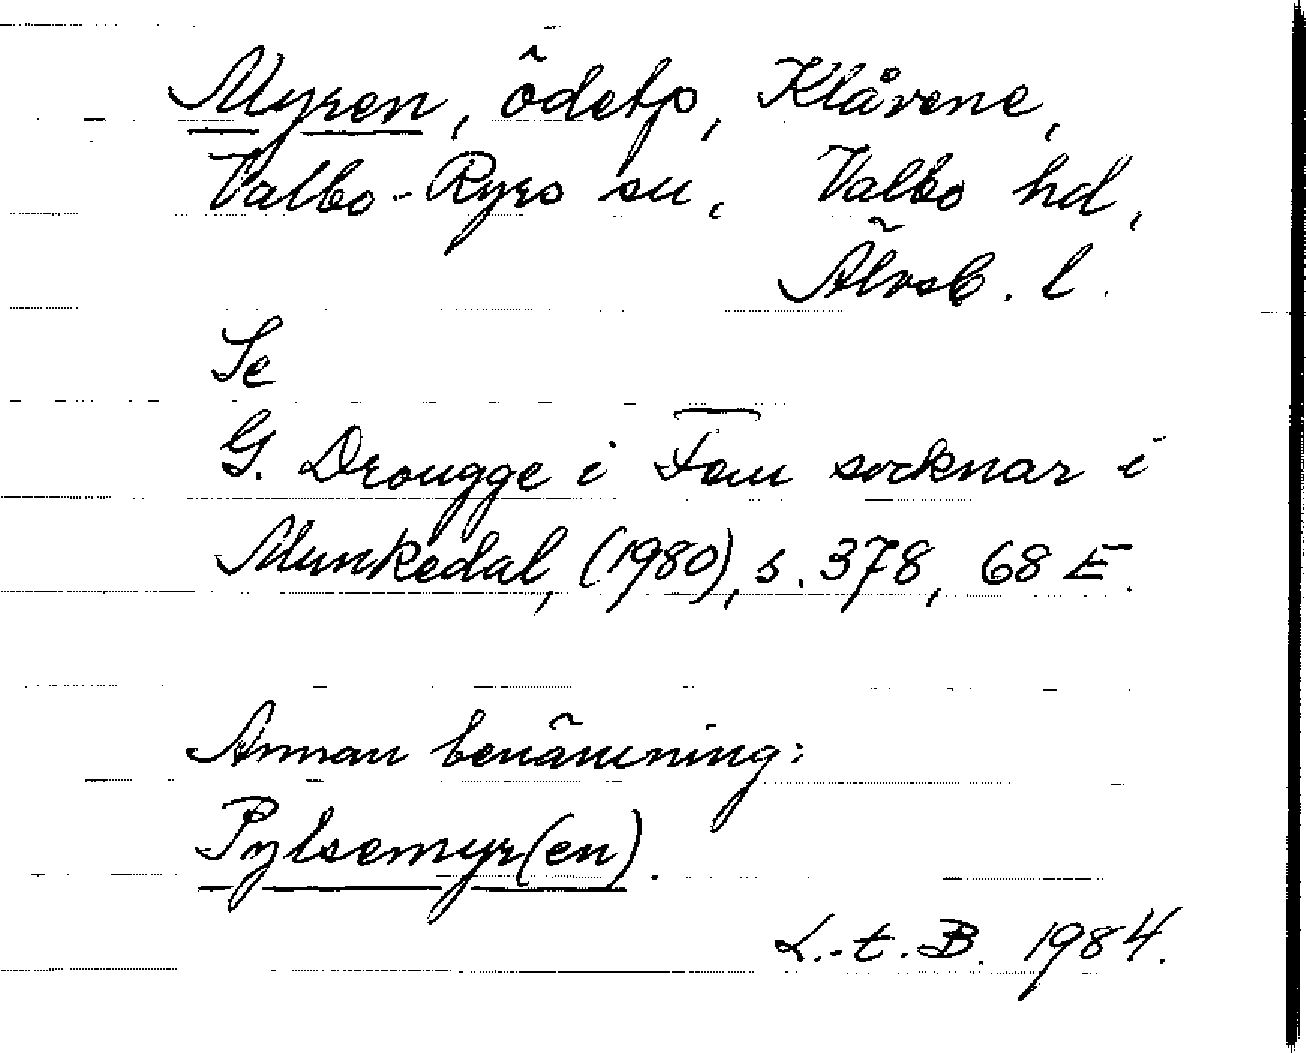 Myren, ödetp, Klåvene,
Valbo-Ryrs sn, Valbo hd,
Älvsb. l.
Se
G. Drougge i Fem socknar i
Munkedal, (1980), s. 378, 68 E.
Annan benämning:
Pylsemyr(en).
L.-t. B. 1984.